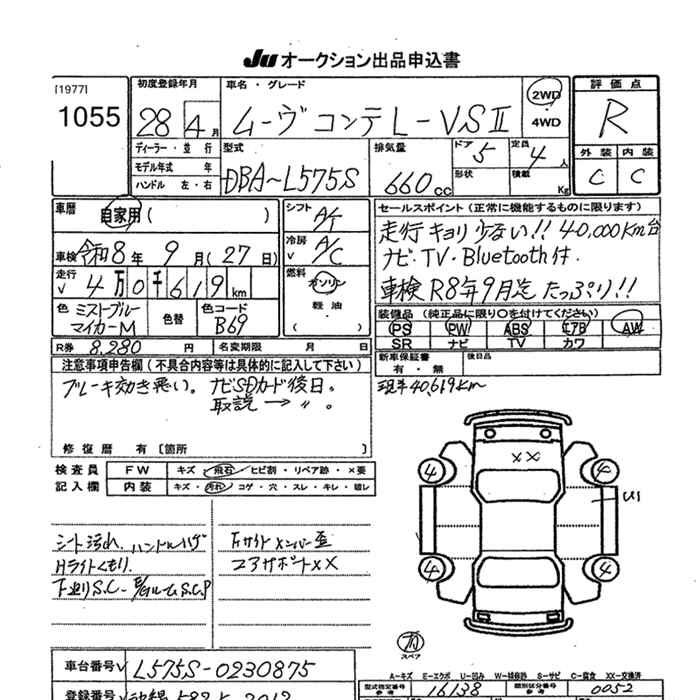 JU オークション出品申込書
[1977]
1055
初度登録年月
28 4月
車名・グレード
ムーヴ コンテ L-VSⅡ
2WD
4WD
評価点
R
外装 内装
C C
ディーラー・並行
モデル年式 年
ハンドル 左・右
型式
DBA-L575S
排気量
660cc
ドア 5
形状
定員 4人
積載 Kg
車歴
自家用( )
車検 令和8年9月(27日)
走行 4万0千619km
色 ミストブルーマイカーM
色替
色コード B69
シフト A/T
冷房 A/C
燃料 ガソリン
軽油
セールスポイント(正常に機能するものに限ります)
走行キョリ少ない!! 40,000Km台
ナビ・TV・Bluetooth付.
車検 R8年9月迄 たっぷり!!
装備品(純正品に限り○を付けてください)
PS PW ABS エアB AW
SR ナビ TV カワ
R券 8,280円
名変期限 月 日
新車保証書
有・無
後日品
注意事項申告欄(不具合内容等は具体的に記入して下さい)
ブレーキ効き悪い。ナビSDカード後日。
取説→〃。
現車40,619km
修復歴 有[箇所 ]
検査員
記入欄
FW キズ・飛石・ヒビ割・リペア跡・×要
内装 キズ・汚れ・コゲ・穴・スレ・キレ・破レ
シート汚れ. ハンドルハゲ
Hライトくもり.
下廻りS.C-
コアサポートXX
XX
4 4
U1
4 4
スペア
A-キズ E-エクボ U-凹み W-補修跡 S-サビ C-腐食 XX-交換済
車台番号 L575S-0230875
型式指定番号 16138
類別区分番号 0052
登録番号